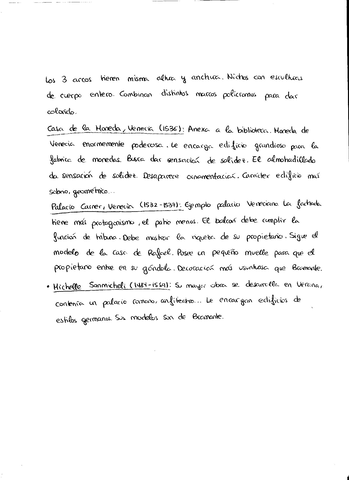 Los 3 arcos tienen misma altura y anchura. Nichos con esculturas
de cuerpo entero. Combinan distintos marcos policromos para dar
colorido.
Casa de la Moneda, Venecia (1536): Anexa a la biblioteca. Moneda de
Venecia enormemente poderosa. Le encarga edificio grandioso para la
fabrica de monedas. Busca dar sensación de solidez. El almohadillado
da sensación de solidez. Desaparece ornamentación. Carácter edificio más
sobrio, geométrico...
Palacio Corner, Venecia (1532-1537): Ejemplo palacio Veneciano. La fachada
tiene más protagonismo, el patio menos. El balcón debe cumplir la
función de tribuna. Debe mostrar la riqueza de su propietario. Sigue el
modelo de la casa de Rafael. Posee un pequeño muelle para que el
propietario entre en su góndola. Decoración más suntuosa que Bramante.
• Michelle Sanmicheli (1484-1559): Su mayor obra se desarrolla en Verona,
contenía un palacio romano, anfiteatro... Le encargan edificios de
estilos Sus modelos son de Bramante.